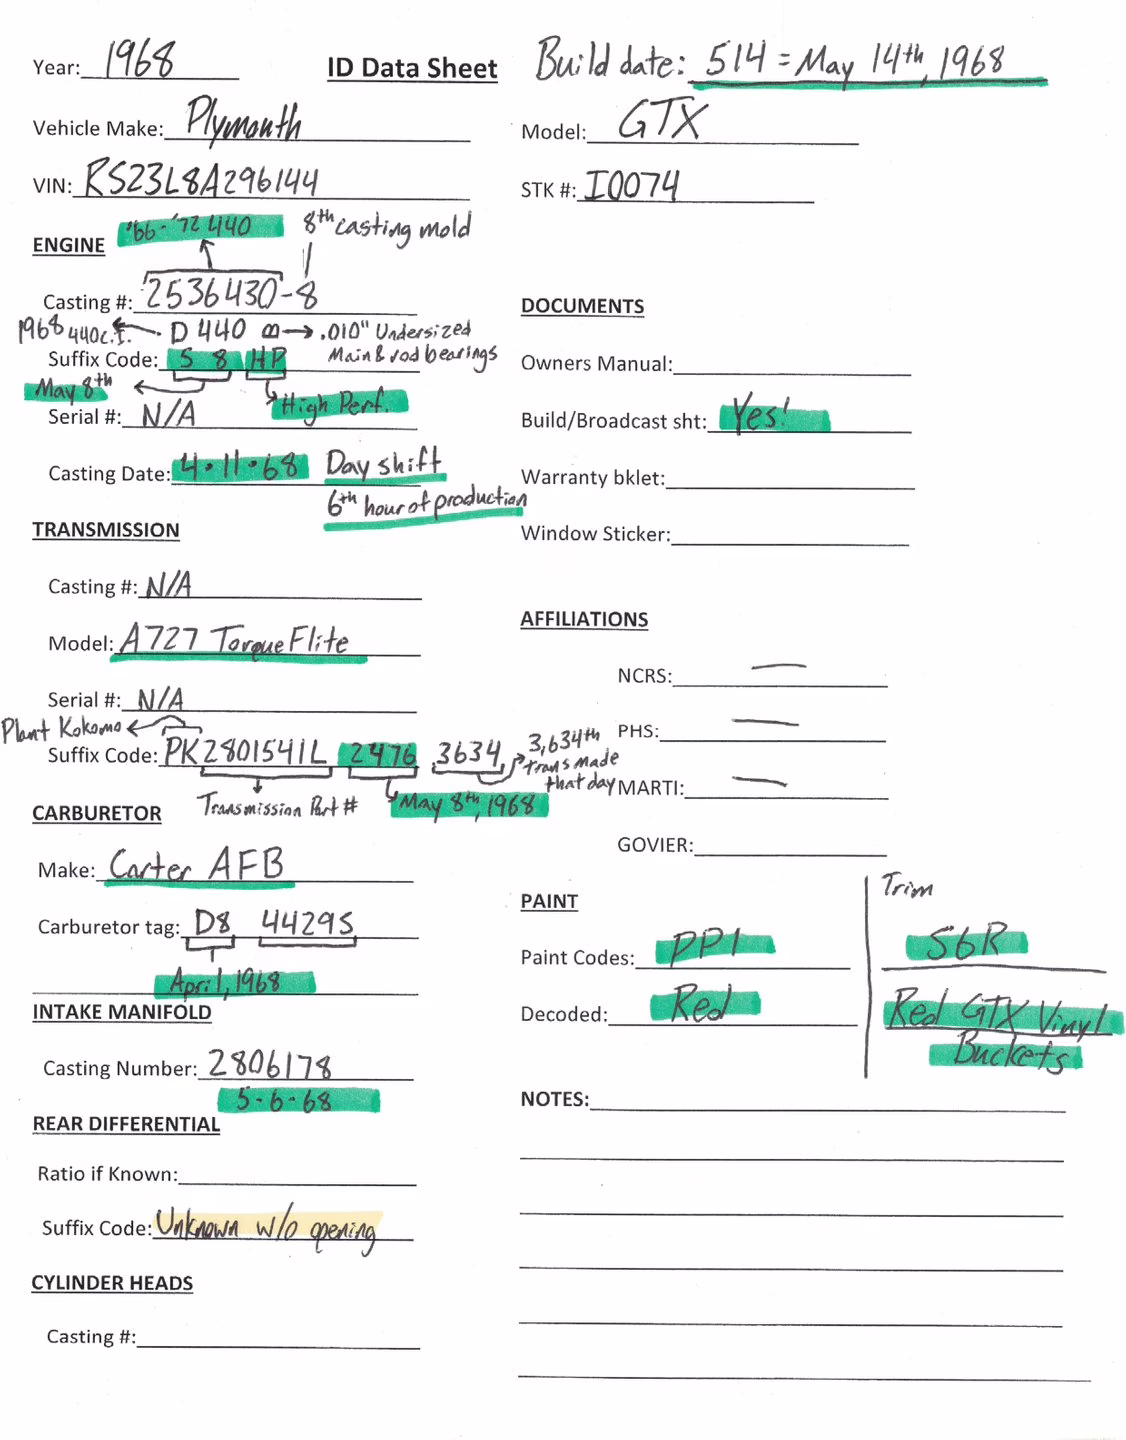 Year: 1968
ID Data Sheet
Build date: 514 = May 14th, 1968
Vehicle Make: Plymouth
Model: GTX
VIN: RS23L8A296144
STK #: I0074
'66-'72 440
8th casting mold
ENGINE
Casting #: 2536430-8
1968 440c.I.
D 440
.010" Undersized
Main & rod bearings
Suffix Code: 5 8 HP
May 8th
High Perf.
Serial #: N/A
Casting Date: 4·11·68
Day shift
6th hour of production
TRANSMISSION
Casting #: N/A
Model: A727 TorqueFlite
Serial #: N/A
Plant Kokomo
Suffix Code: PK2801541L 2476 3634
3,634th
trans made
that day
Transmission Part #
May 8th, 1968
CARBURETOR
Make: Carter AFB
Carburetor tag: D8 4429S
April, 1968
INTAKE MANIFOLD
Casting Number: 2806178
5-6-68
REAR DIFFERENTIAL
Ratio if Known:
Suffix Code: Unknown w/o opening
CYLINDER HEADS
Casting #:
DOCUMENTS
Owners Manual:
Build/Broadcast sht: Yes!
Warranty bklet:
Window Sticker:
AFFILIATIONS
NCRS: —
PHS: —
MARTI: —
GOVIER:
PAINT
Paint Codes: PP1
Decoded: Red
Trim
S6R
Red GTX Vinyl
Buckets
NOTES: